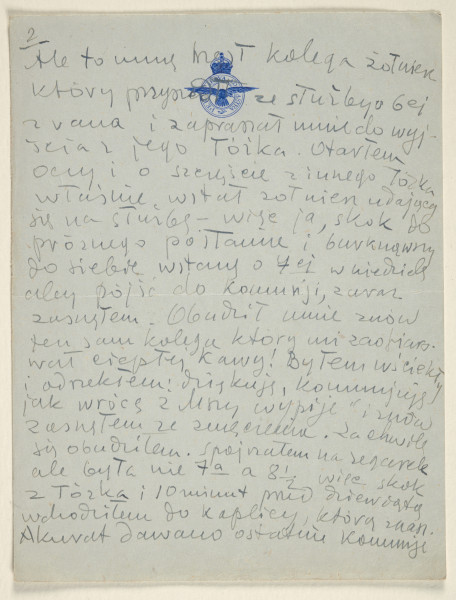 2
Ale to mną miął kolega żołnierz
który przyszedł ze służby o 6ej
z rana i zapraszał mnie do wyj-
ścia z jego łóżka. Otarłem
oczy i o szczęście z innego łóżka
właśnie wstał żołnierz udający
się na służbę – więc ja, skok do
próżnego posłanie i burknąwszy
do siebie wstanę o 7ej w niedzielę
aby pójść do Komunji, zaraz
zasnąłem. Obudził mnie znów
ten sam kolega który mi zaofiaro-
wał ciepłej kawy! Byłem wściekły
i odrzekłem: dziękuję, Komunikuję
jak wrócę z Mszy wypiję" i znów
zasnąłem ze zmęczenia. Za chwilę
się obudziłem. Spojrzałem na zegarek
ale była nie 7a a 8½ więc skok
z łóżka i 10 minut przed dziewiątą
wchodziłem do kaplicy, którą znasz.
Akurat dawano ostatnie Komunije